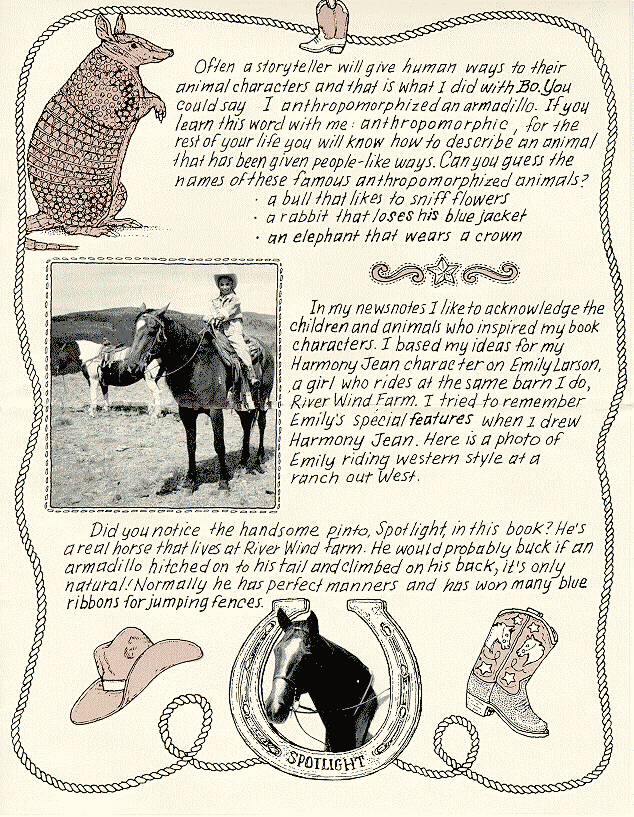 Often a storyteller will give human ways to their
animal characters and that is what I did with Bo. You
could say I anthropomorphized an armadillo. If you
learn this word with me: anthropomorphic, for the
rest of your life you will know how to describe an animal
that has been given people-like ways. Can you guess the
names of these famous anthropomorphized animals?
· a bull that likes to sniff flowers
· a rabbit that loses his blue jacket
· an elephant that wears a crown
In my newsnotes I like to acknowledge the
children and animals who inspired my book
characters. I based my ideas for my
Harmony Jean character on Emily Larson,
a girl who rides at the same barn I do,
River Wind Farm. I tried to remember
Emily's special features when I drew
Harmony Jean. Here is a photo of
Emily riding western style at a
ranch out West.
Did you notice the handsome pinto, Spotlight, in this book? He's
a real horse that lives at River Wind Farm. He would probably buck if an
armadillo hitched on to his tail and climbed on his back, it's only
natural! Normally he has perfect manners and has won many blue
ribbons for jumping fences.
SPOTLIGHT